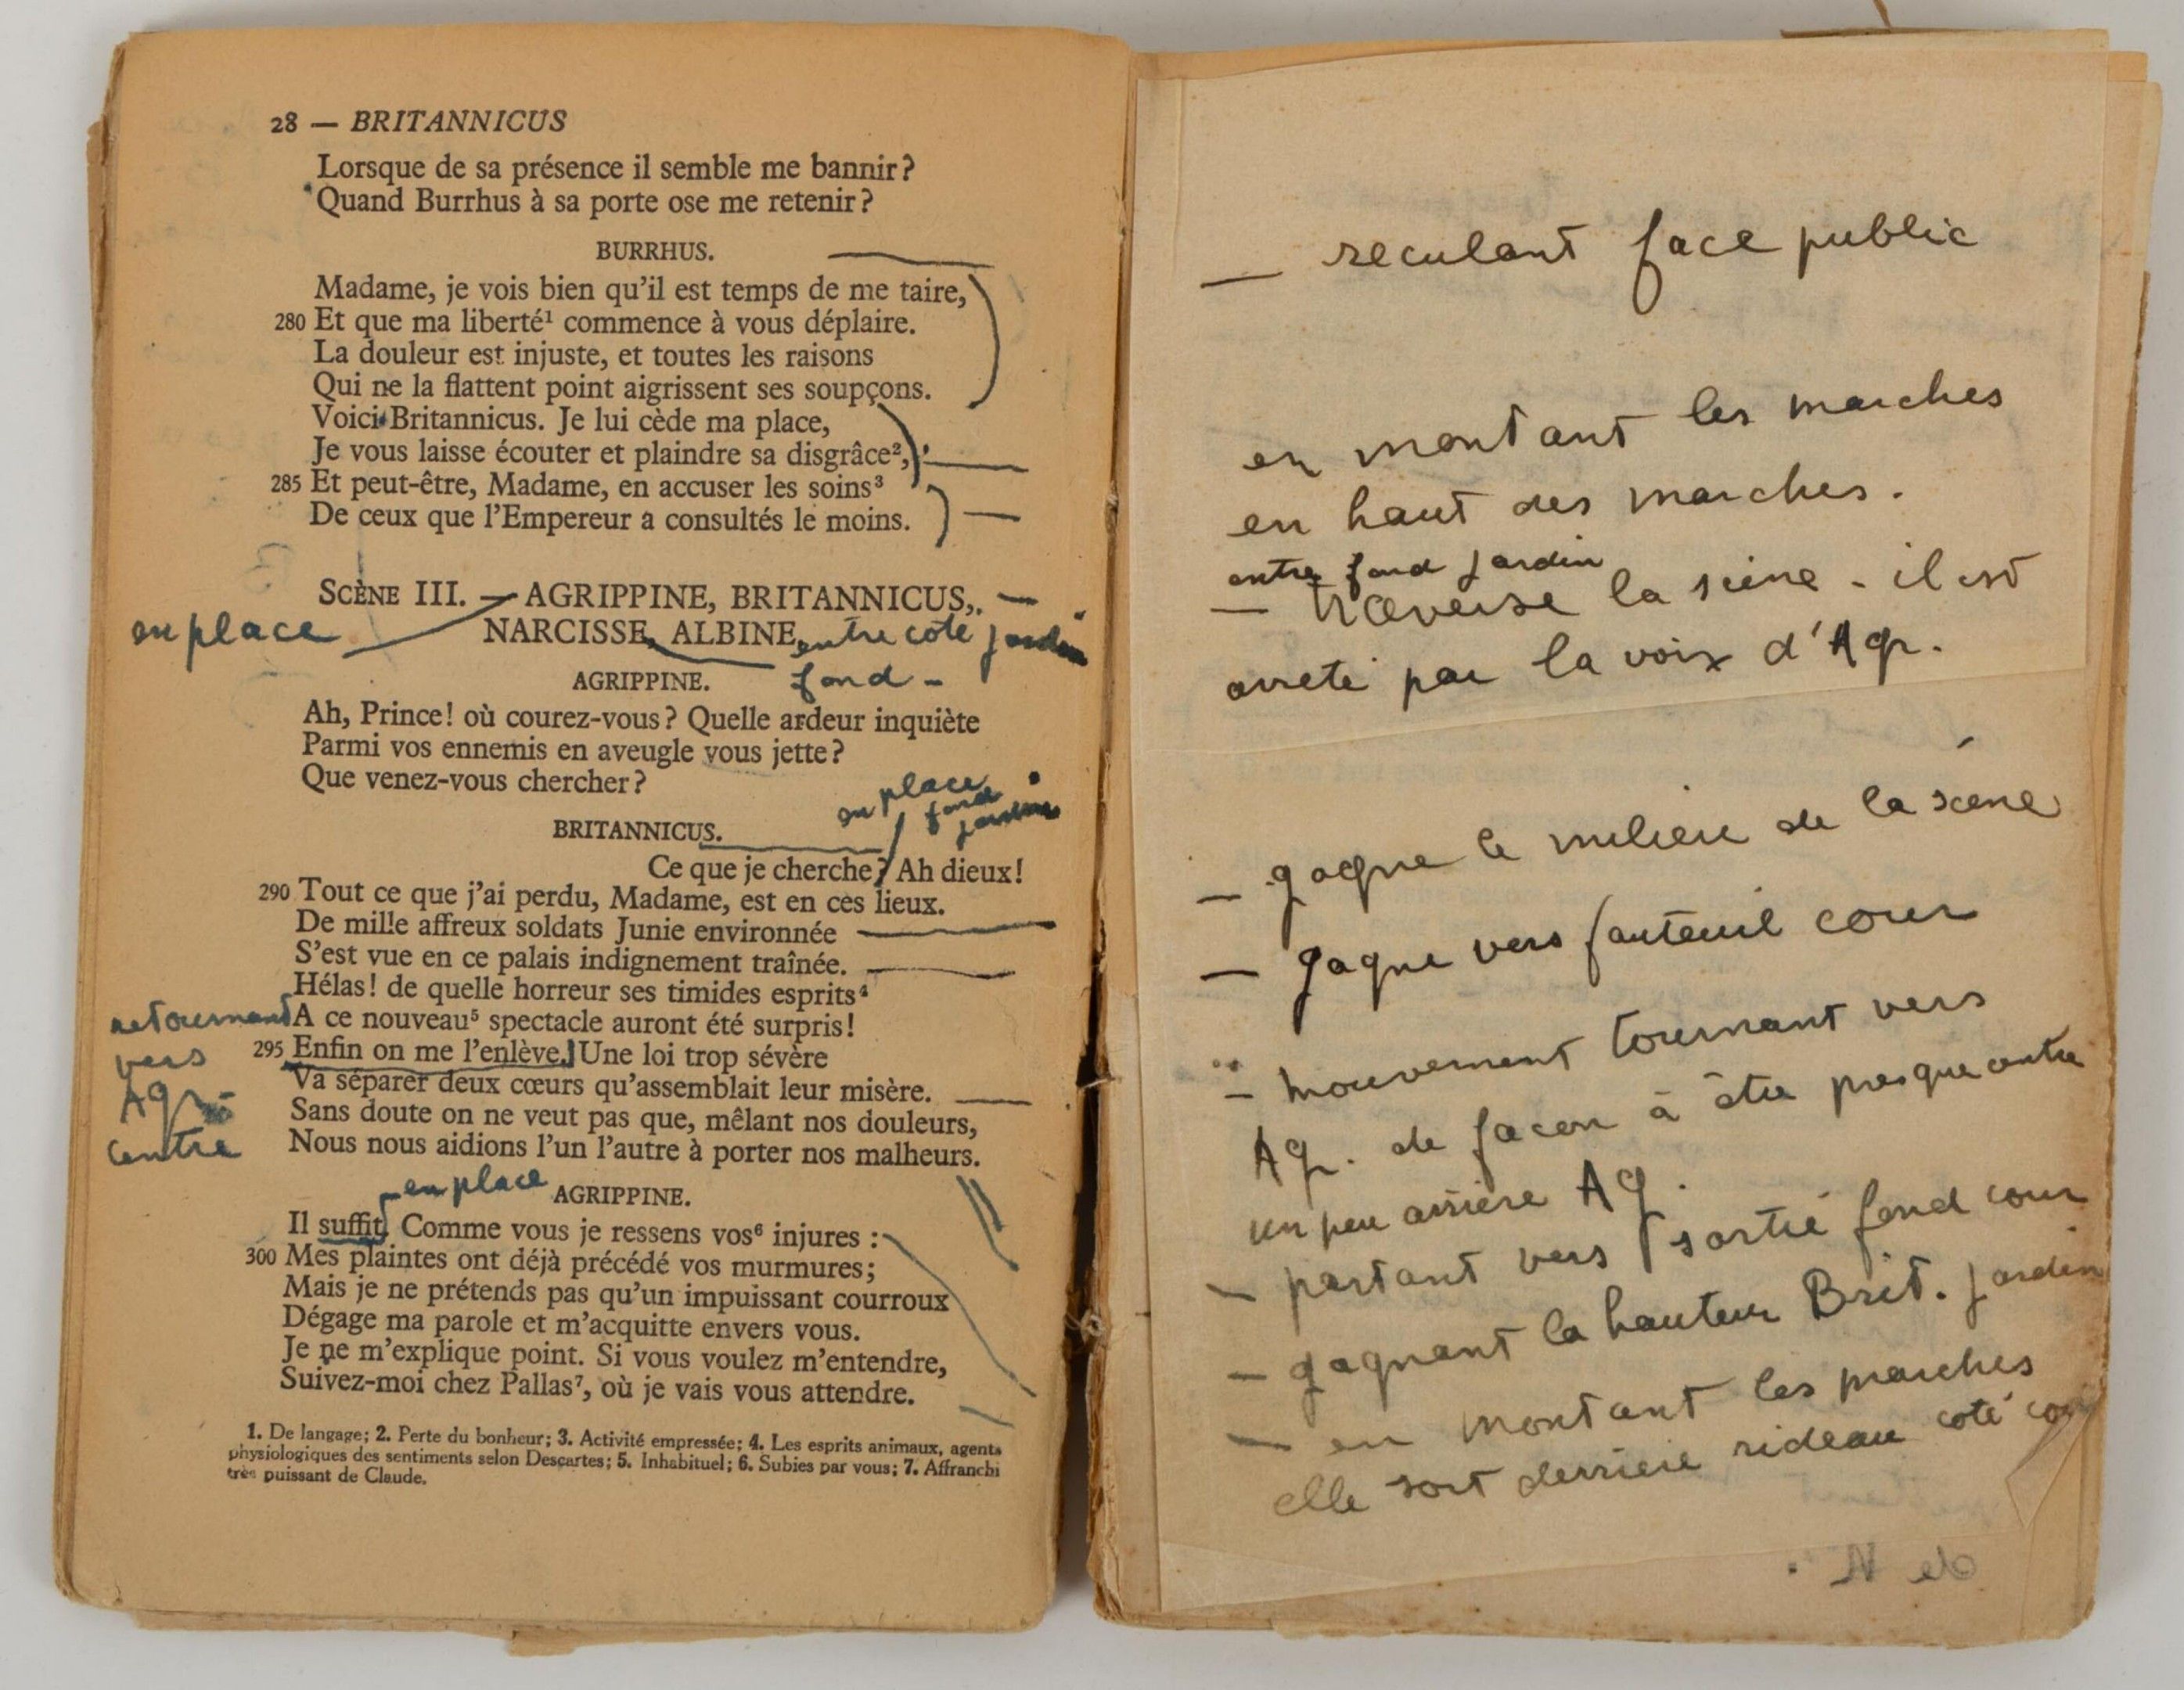 28 — BRITANNICUS
Lorsque de sa présence il semble me bannir?
Quand Burrhus à sa porte ose me retenir?
BURRHUS.
Madame, je vois bien qu'il est temps de me taire,
280 Et que ma liberté¹ commence à vous déplaire.
La douleur est injuste, et toutes les raisons
Qui ne la flattent point aigrissent ses soupçons.
Voici Britannicus. Je lui cède ma place,
Je vous laisse écouter et plaindre sa disgrâce²,
285 Et peut-être, Madame, en accuser les soins³
De ceux que l'Empereur a consultés le moins.
SCÈNE III. — AGRIPPINE, BRITANNICUS,
en place
NARCISSE, ALBINE
entre coté jardin
fond -
AGRIPPINE.
Ah, Prince! où courez-vous? Quelle ardeur inquiète
Parmi vos ennemis en aveugle vous jette?
Que venez-vous chercher?
en place
fond
jardin
BRITANNICUS.
Ce que je cherche? Ah dieux!
290 Tout ce que j'ai perdu, Madame, est en ces lieux.
De mille affreux soldats Junie environnée
S'est vue en ce palais indignement traînée.
Hélas! de quelle horreur ses timides esprits⁴
A ce nouveau⁵ spectacle auront été surpris!
295 Enfin on me l'enlève. Une loi trop sévère
Va séparer deux cœurs qu'assemblait leur misère.
Sans doute on ne veut pas que, mêlant nos douleurs,
Nous nous aidions l'un l'autre à porter nos malheurs.
retournant
vers
Agr
centre
en place
AGRIPPINE.
Il suffit. Comme vous je ressens vos⁶ injures :
300 Mes plaintes ont déjà précédé vos murmures;
Mais je ne prétends pas qu'un impuissant courroux
Dégage ma parole et m'acquitte envers vous.
Je ne m'explique point. Si vous voulez m'entendre,
Suivez-moi chez Pallas⁷, où je vais vous attendre.
1. De langage; 2. Perte du bonheur; 3. Activité empressée; 4. Les esprits animaux, agents
physiologiques des sentiments selon Descartes; 5. Inhabituel; 6. Subies par vous; 7. Affranchi
très puissant de Claude.
— reculant face public
en montant les marches
en haut des marches.
entre fond jardin
— traverse la scène - il est
arreté par la voix d'Agr.
— gagne le milieu de la scène
— gagne vers fauteuil cour
— mouvement tournant vers
Agr. de facon à être presque centre
un peu arrière Ag.
— partant vers sortie fond cour
— gagnant la hauteur Brit. jardin
— en montant les marches
elle sort derriere rideau coté cour